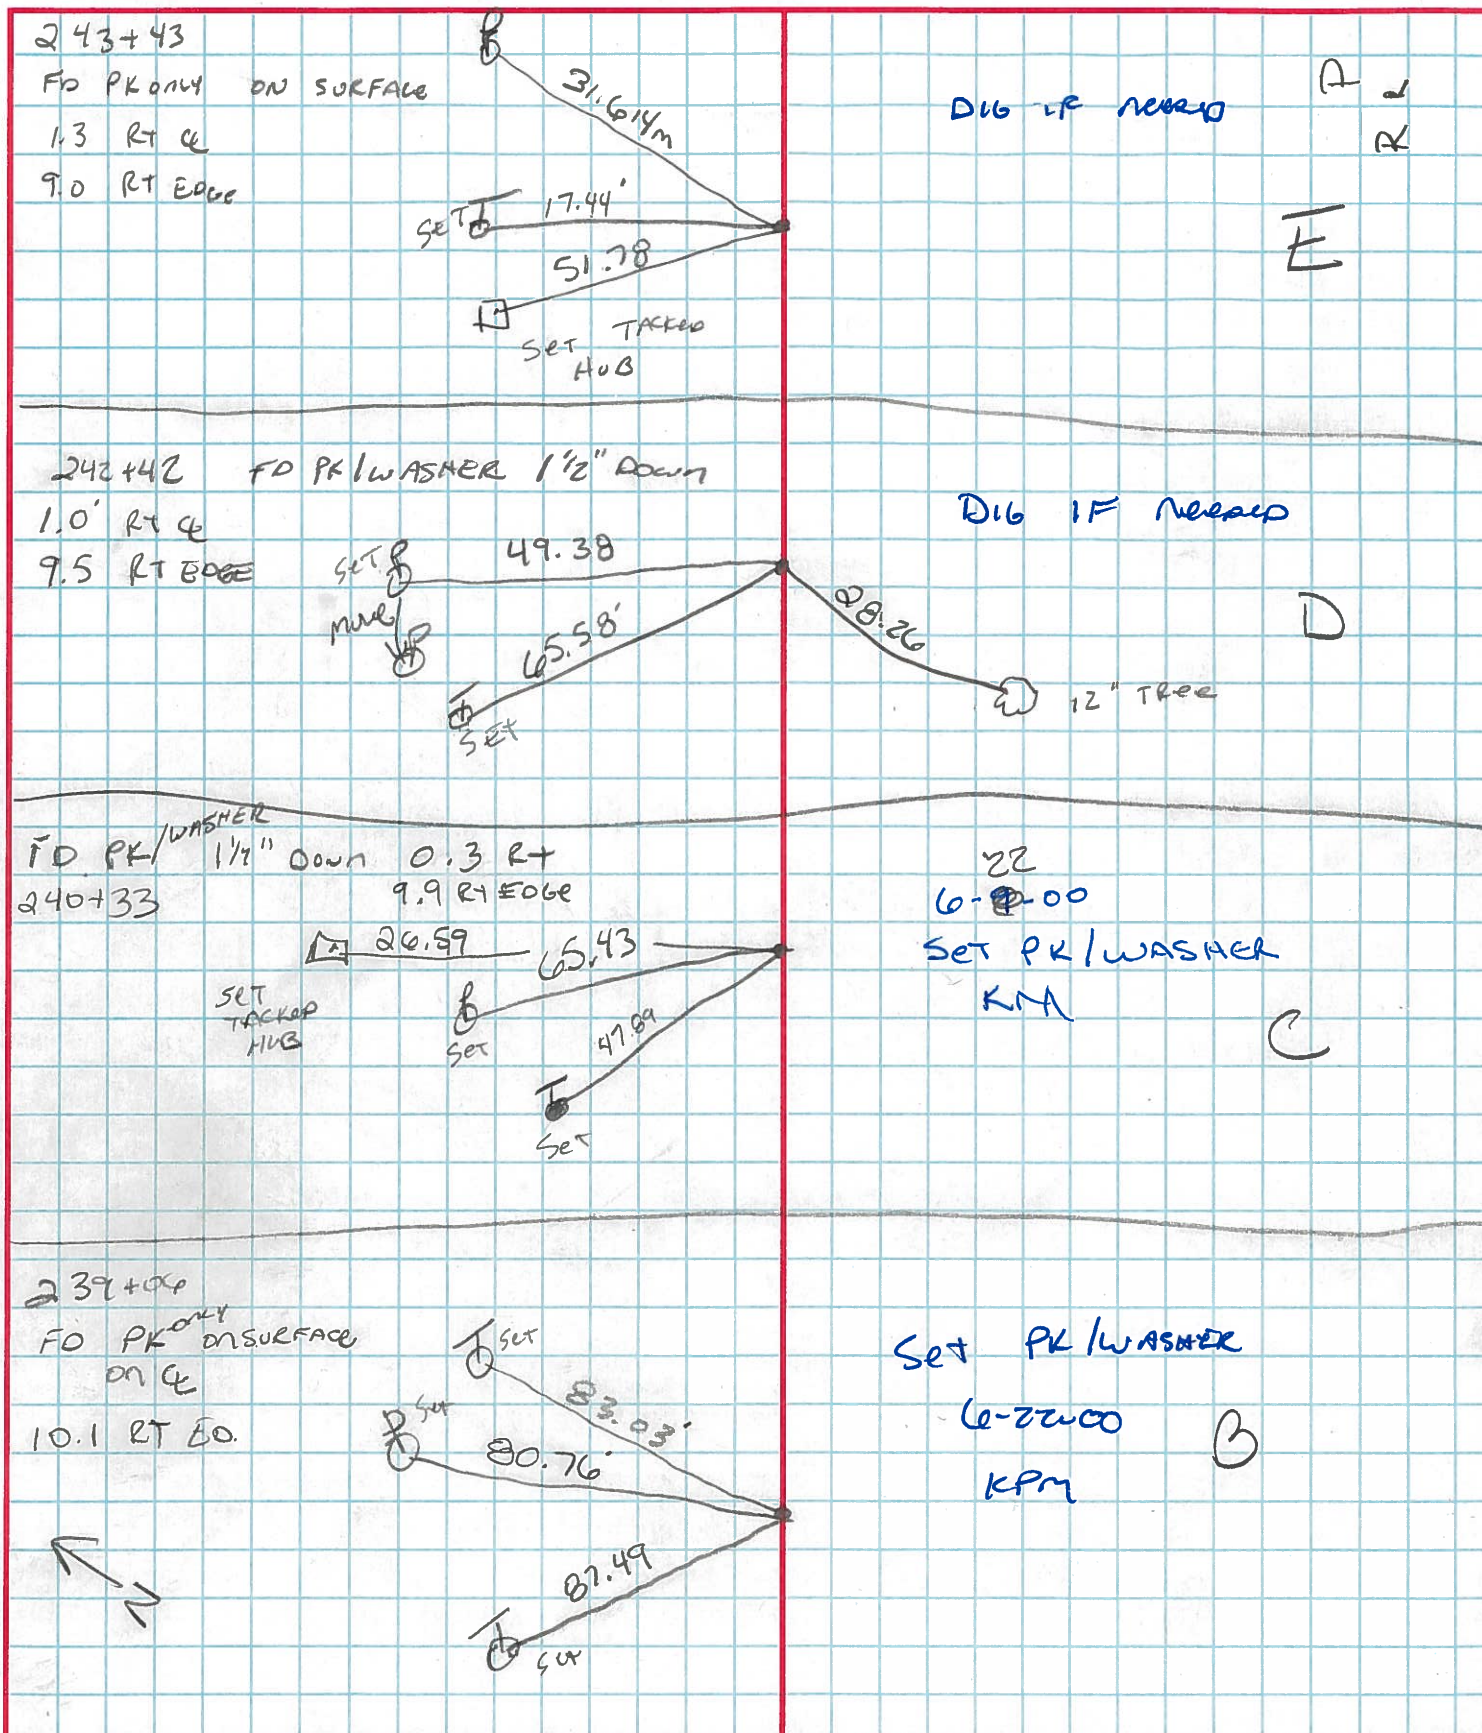 243+43
FD PK ONLY ON SURFACE
1.3 RT ℄
9.0 RT EDGE
31.614m
SET 17.44'
51.78
SET TACKED
HUB
DIG IF NEEDED
E
242+42 FD PK/WASHER 1 1/2" DOWN
1.0' RT ℄
9.5 RT EDGE
SET 49.38
MOVE
65.58'
SET
28.26
12" TREE
DIG IF NEEDED
D
FD PK/WASHER 1 1/2" DOWN 0.3 RT
240+33 9.9 RT EDGE
26.59 65.43
SET
TACKED
HUB
SET
47.89
SET
22
6-00
SET PK/WASHER
KM
C
239+06
FD PK ONLY ON SURFACE
ON ℄
10.1 RT ED.
SET
83.03'
SET
80.76'
87.49
SET
N
SET PK/WASHER
6-22-00
KPM
B